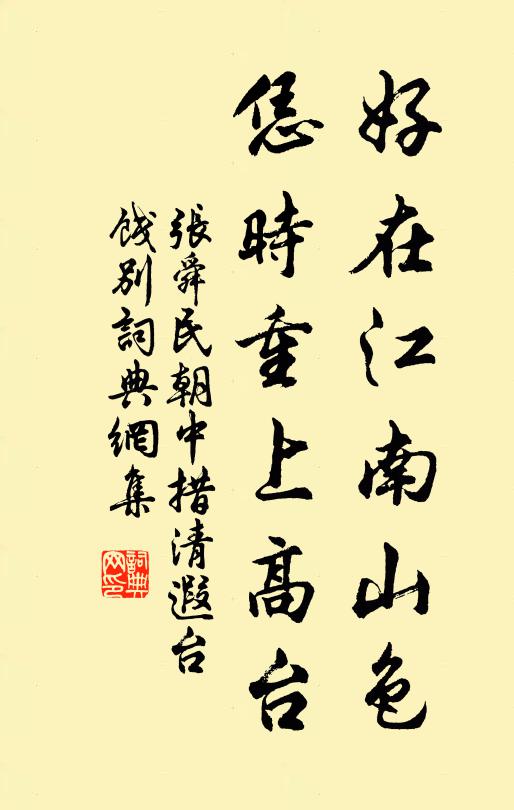 好在江南山色
恁時重上高台
張舜民朝中措清遐台
餞別詞典網集
詞典
网印